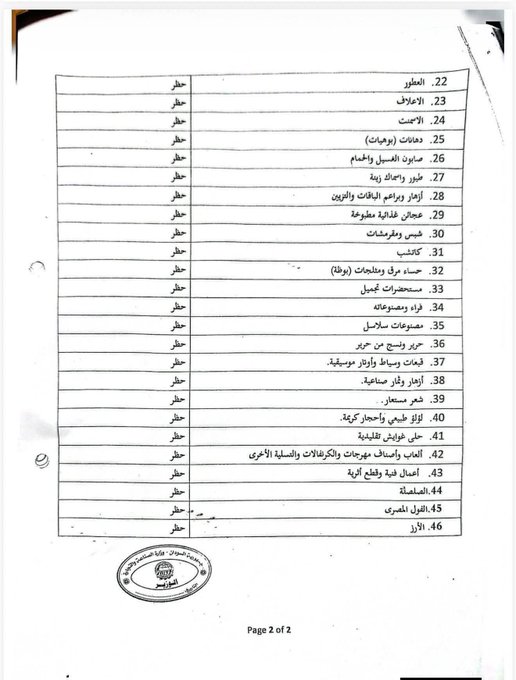 22. العطور حظر
23. الاعلاف حظر
24. الاسمنت حظر
25. دهانات (بوهيات) حظر
26. صابون الغسيل والحمام حظر
27. طيور واسماك زينة حظر
28. أزهار وبراعم الباقات والتزيين حظر
29. عجائن غذائية مطبوخة حظر
30. شبس ومقرمشات حظر
31. كاتشب حظر
32. حساء مرق ومثلجات (بوظة) حظر
33. مستحضرات تجميل حظر
34. فراء ومصنوعاته حظر
35. مصنوعات سلاسل حظر
36. حرير ونسج من حرير حظر
37. قبعات وسياط وأوتار موسيقية. حظر
38. أزهار وثمار صناعية. حظر
39. شعر مستعار. حظر
40. لؤلؤ طبيعي وأحجار كريمة. حظر
41. حلى غوايش تقليدية حظر
42. ألعاب وأصناف مهرجات والكرنفالات والتسلية الأخرى حظر
43. أعمال فنية وقطع أثرية حظر
44. الصلصلة حظر
45. الفول المصرى حظر
46. الأرز حظر
جمهورية السودان - وزارة الصناعة والتجارة
الوزير
Page 2 of 2